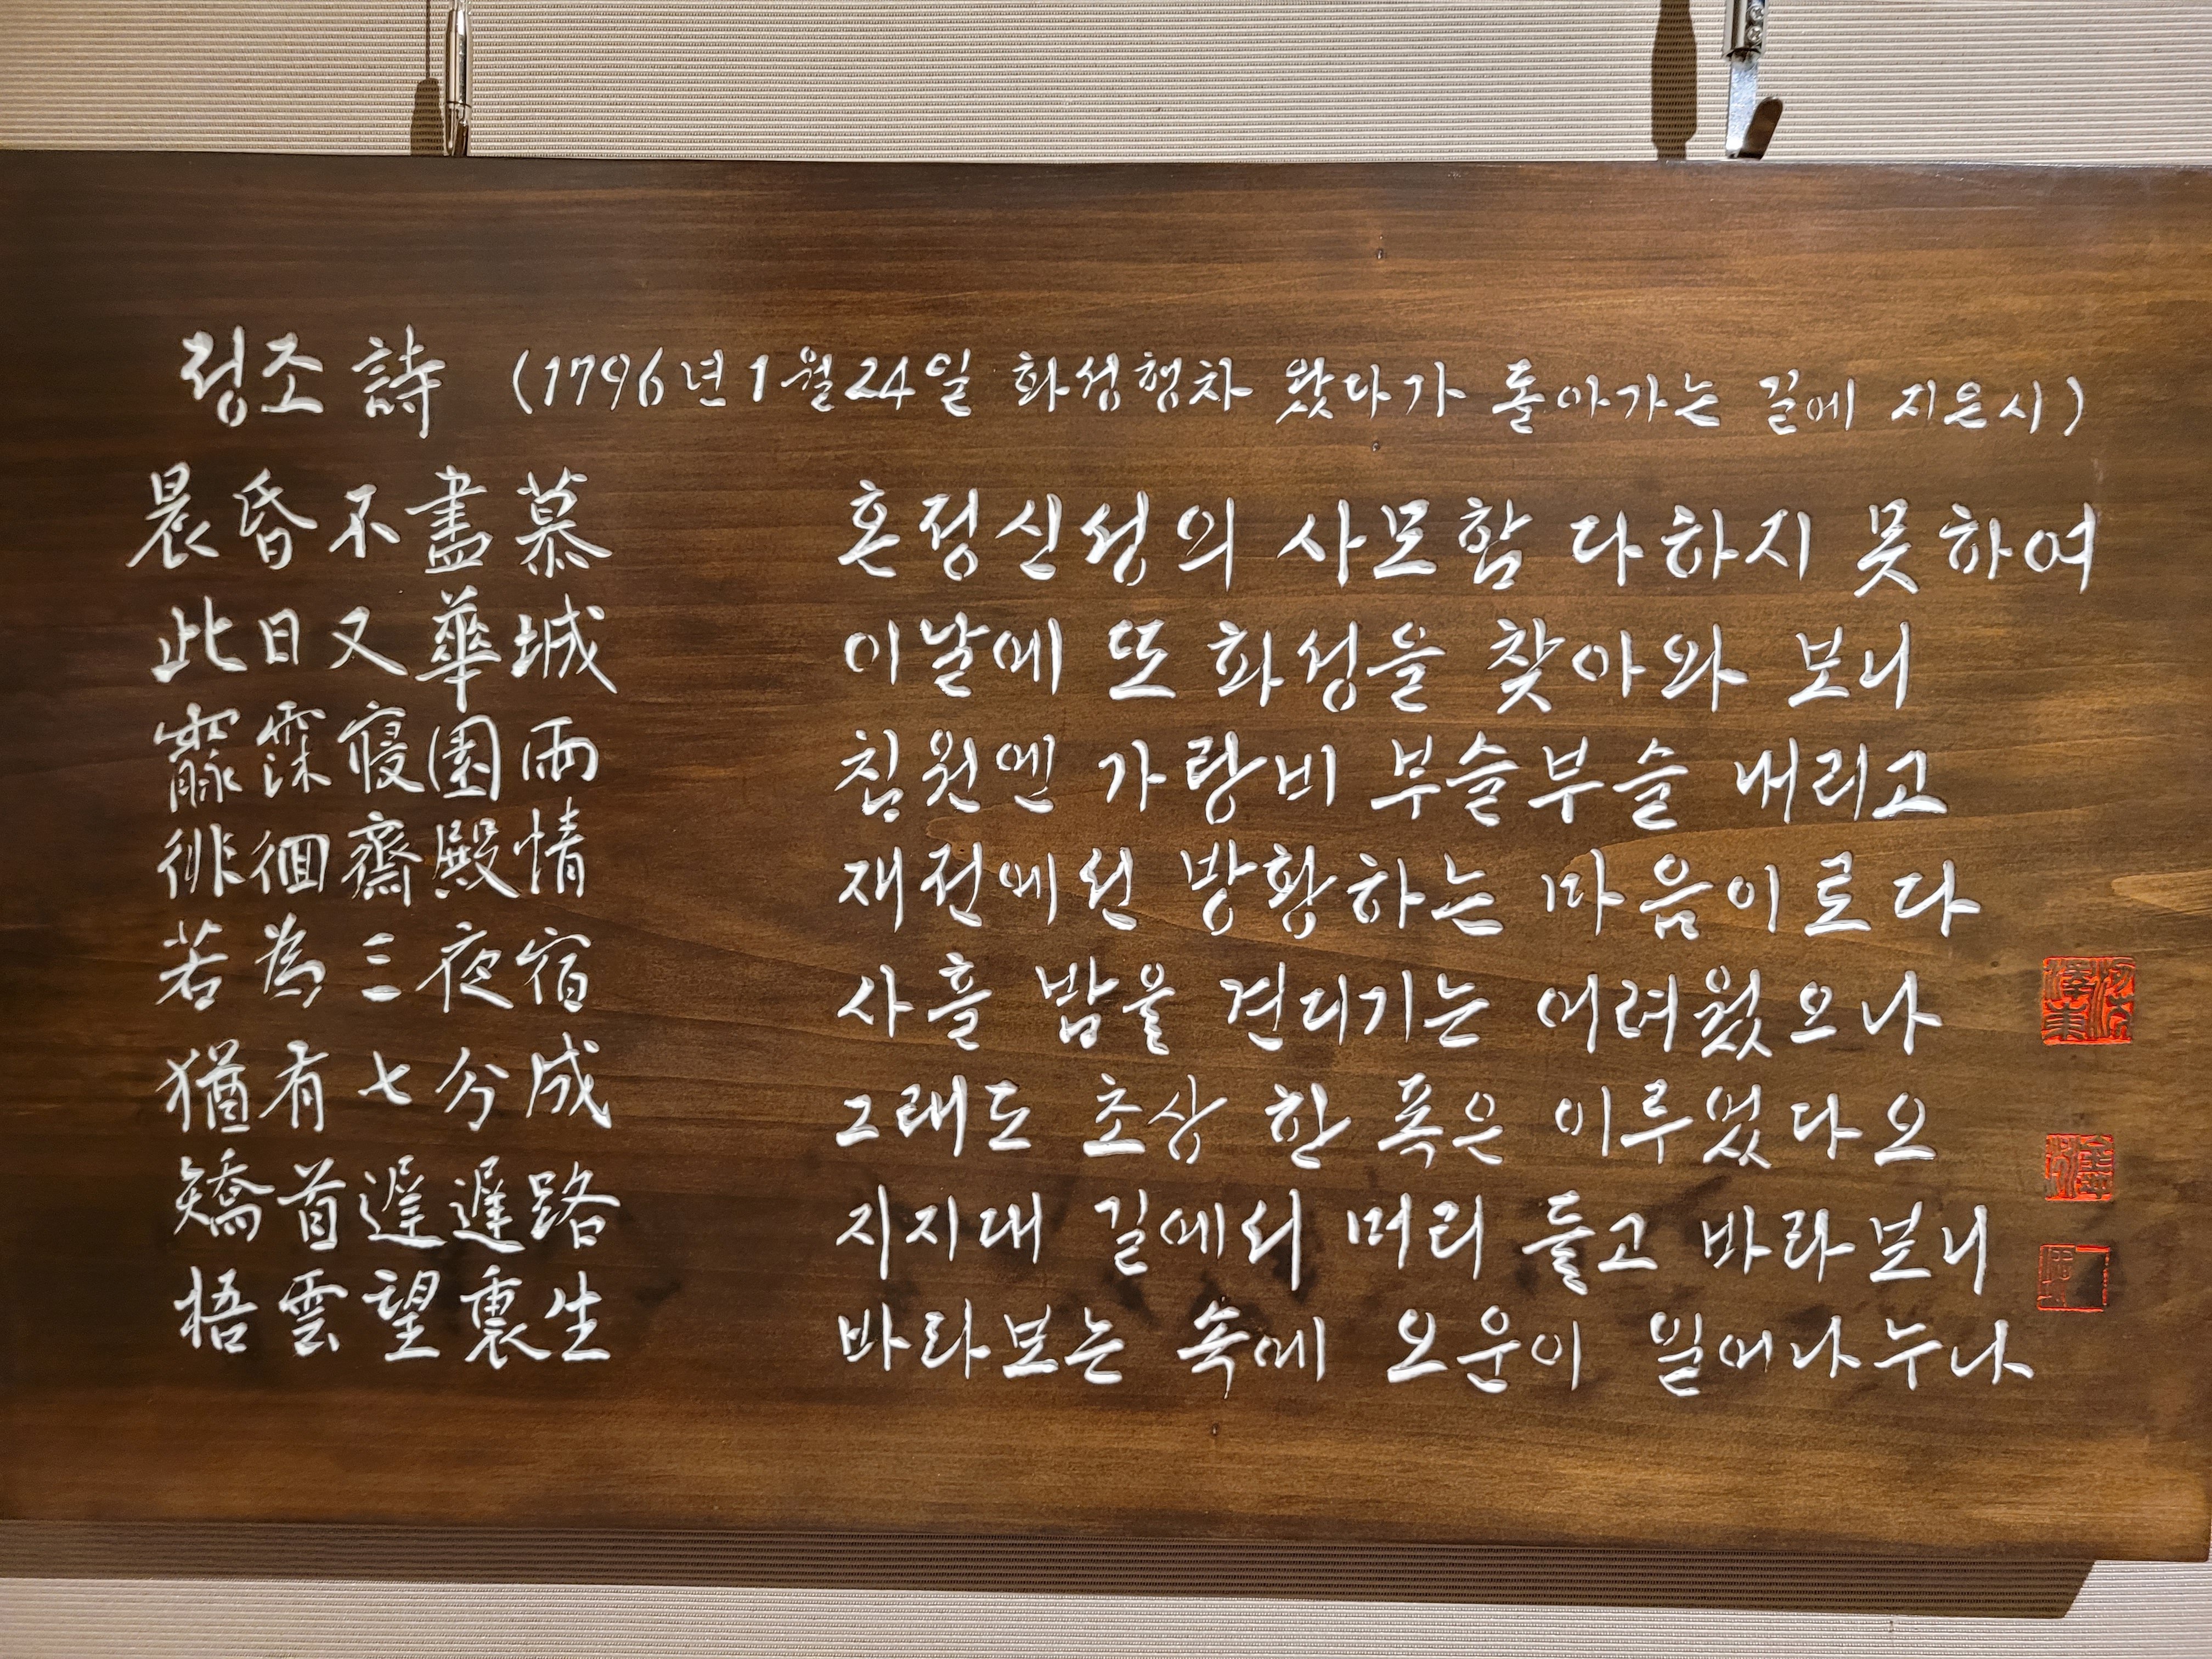 정조 詩 (1796년 1월 24일 화성행차 왔다가 돌아가는 길에 지은시)
晨昏不盡慕
此日又華城
霢霂寢園雨
徘徊齋殿情
若為三夜宿
猶有七分成
矯首遲遲路
梧雲望裏生
혼정신성의 사모함 다하지 못하여
이날에 또 화성을 찾아와 보니
침원엔 가랑비 부슬부슬 내리고
재전에선 방황하는 마음이로다
사흘 밤을 견디기는 어려웠으나
그래도 초상 한 폭은 이루었다오
지지대 길에서 머리 들고 바라보니
바라보는 속에 오운이 일어나누나